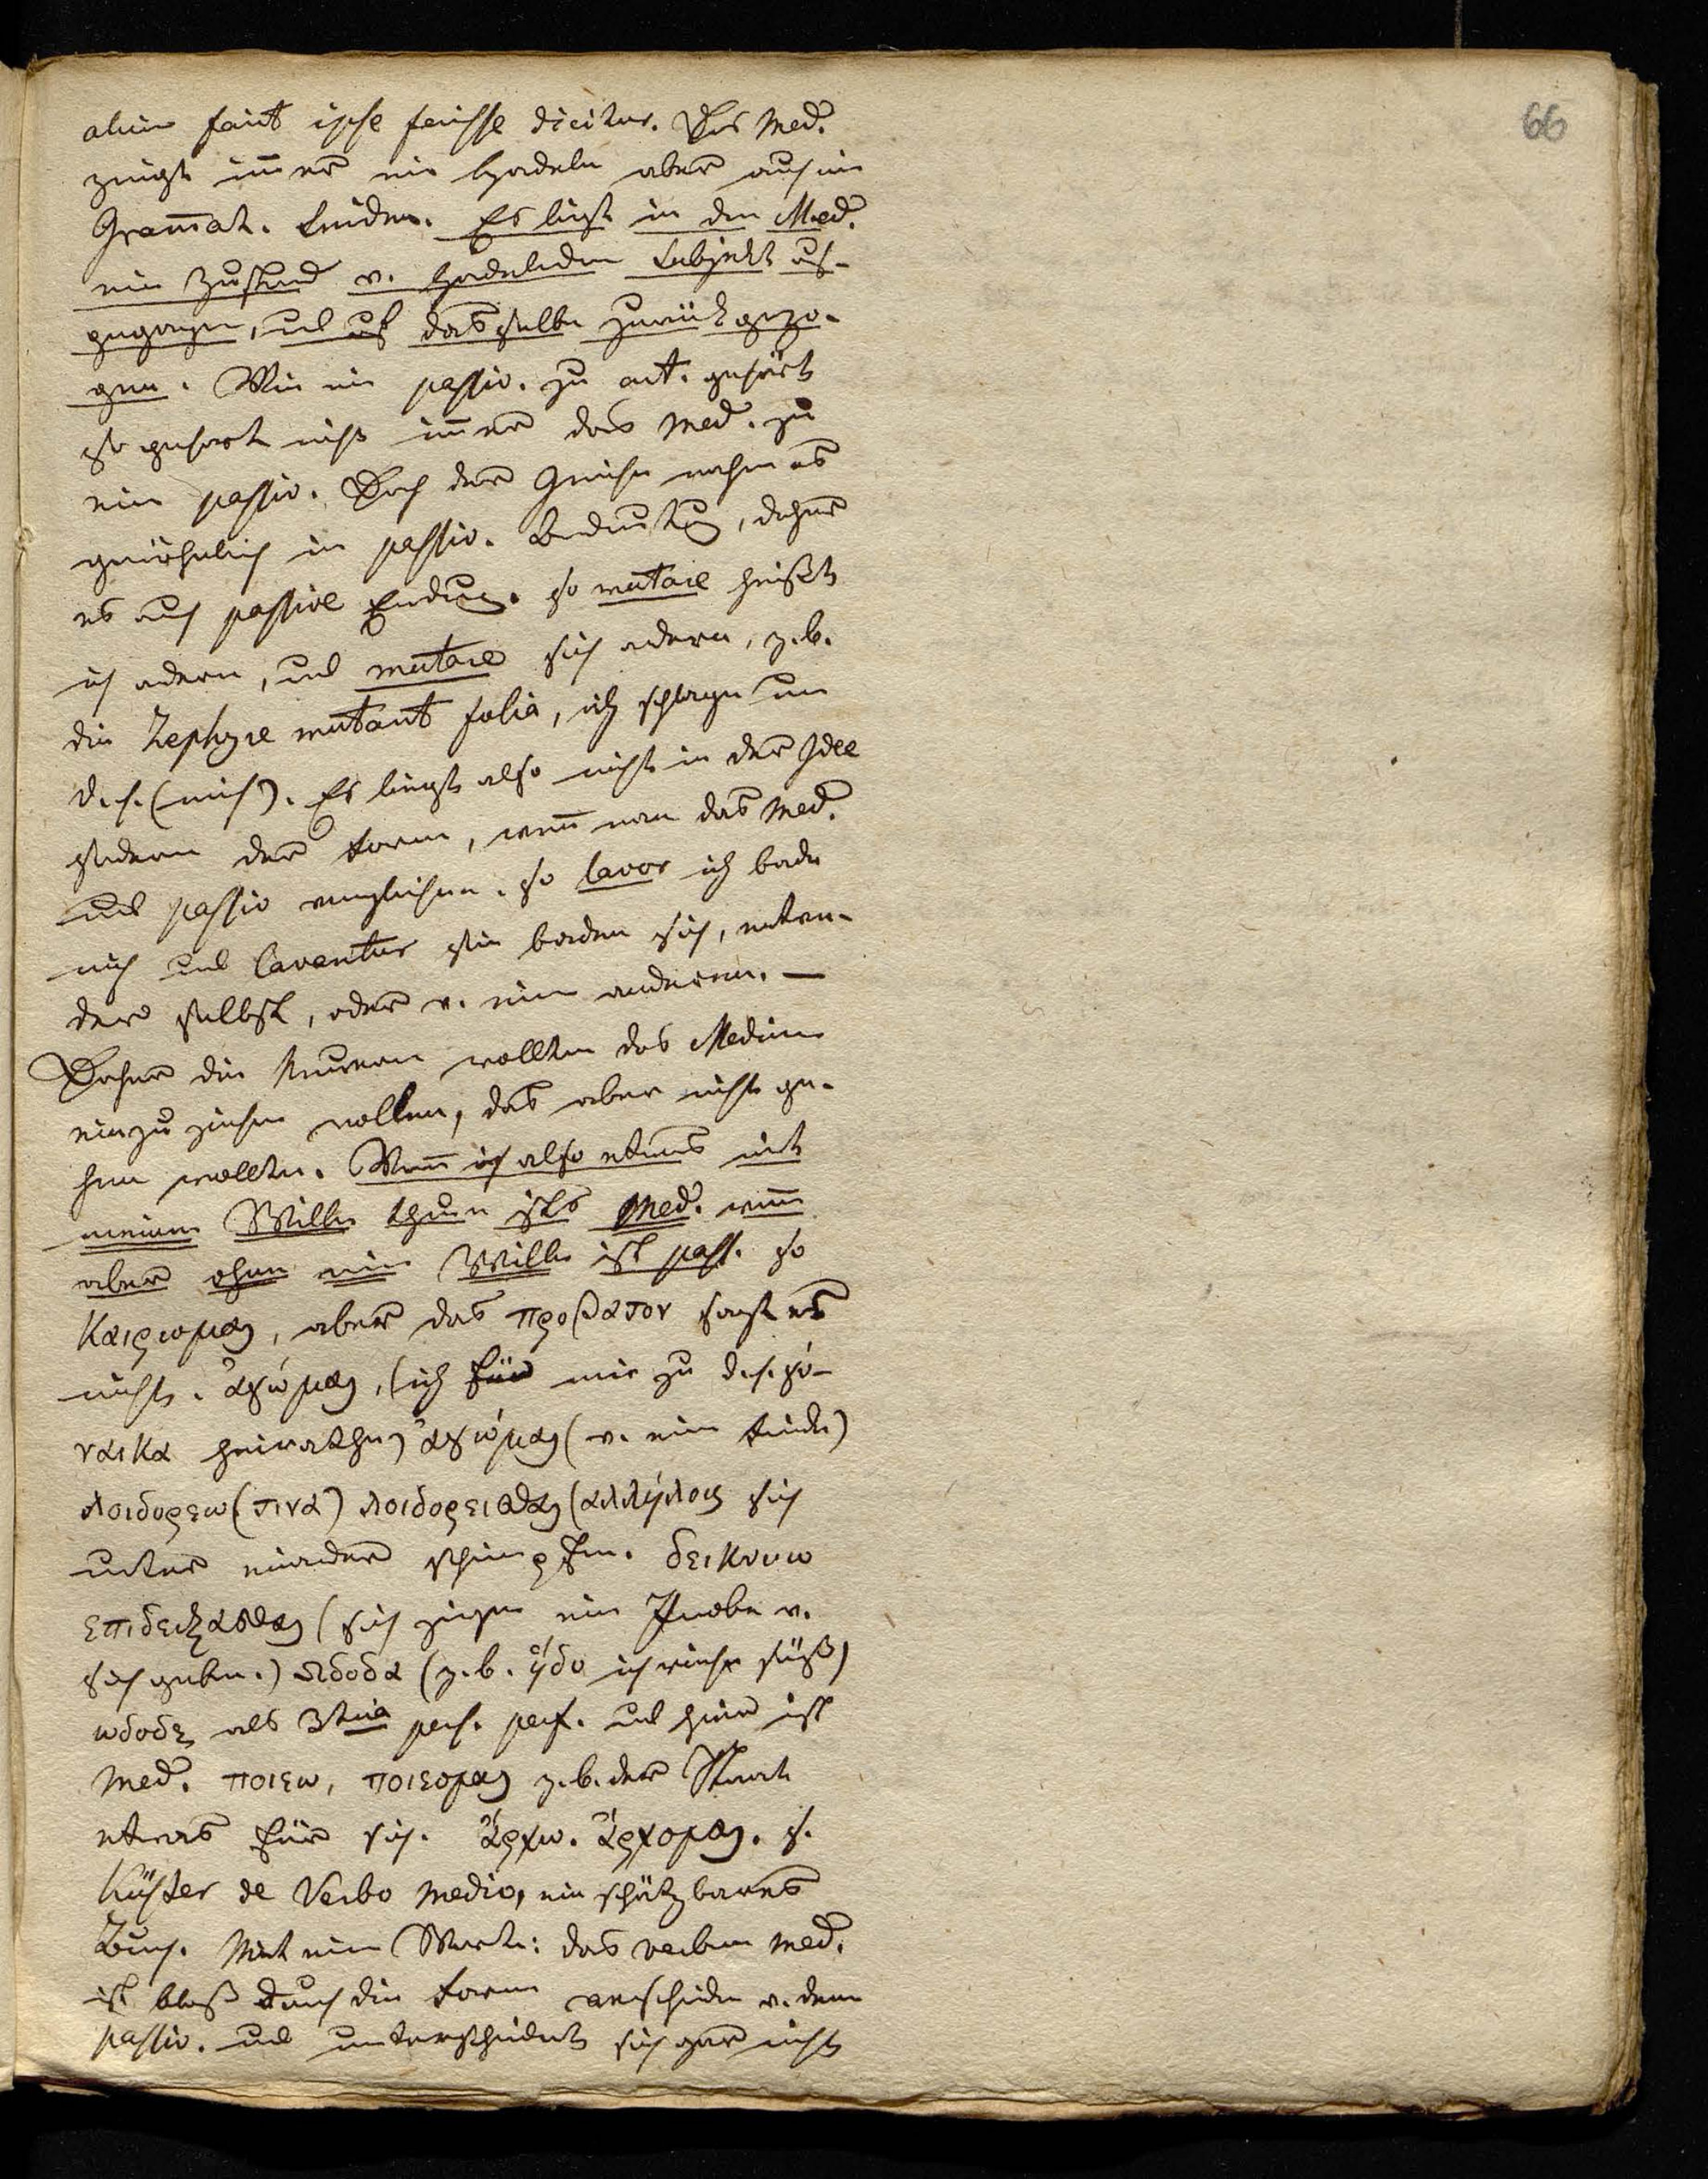 66
alium facit ipse fecisse dicitur. Das Med.
zeigt im̄er ein Handeln aber auch ein
Gram̄at. Leiden. Es liegt in den Med.
ein Zustand v. handelnden Subjekt aus-
gegangen, und auf dasselbe zurückgezo-
gen. Wie ein passiv. zu act. gehört
so gehört nicht im̄er das Med. zu
ein passiv. Doch der Grieche nahm es
gewöhnlich in passiv. Bedeutung, daher
es auch passive Endung. so mutare heißt
ich ändern, und mutare sich ändern, z.b.
die Zephyre mutant folia, ich schlage um
d.h. (mich). Es liegt also nicht in der Idee
sondern der Form, wen̄ man das Med.
und passiv verglichen. so lavor ich bade
mich und laventur sie baden sich, entwe-
der selbst, oder v. ein anderen. —
Daher die Neueren wollten das Medium
einzuziehen wollen, das aber nicht ge-
hen wollte. Wen̄ ich also etwas mit
meinem Willen thun ists Med. wen̄
aber ohne mein Willen ist pass. so
καιρωμαι, aber das προβατον sagt es
nicht. ἀγώμαι, (ich führ mir zu d.h. γύ-
ναικα heirathen) ἀγώμαι (v. ein Feinde)
λοιδορεω (τινα) λοιδορεισθαι (αλλήλοις sich
unter einander schimpfen. δεικνυω
επιδειξασθαι (sich zeigen ein Probe v.
sich geben.) ωδοδα (z.b. ἡδυ ich rieche süß)
ωδοδε als 3tia pers. perf. und hier ist
Med. ποιεω, ποιεομαι z.b. der Staat
etwas für sich. ἄρχω. ἄρχομαι. s.
Küster de Verbo medio, ein schätzbares
Buch. Mit ein Worte: das verbum med.
ist bloß durch die Form verschieden v. dem
passiv. und unterscheidet sich gar nicht